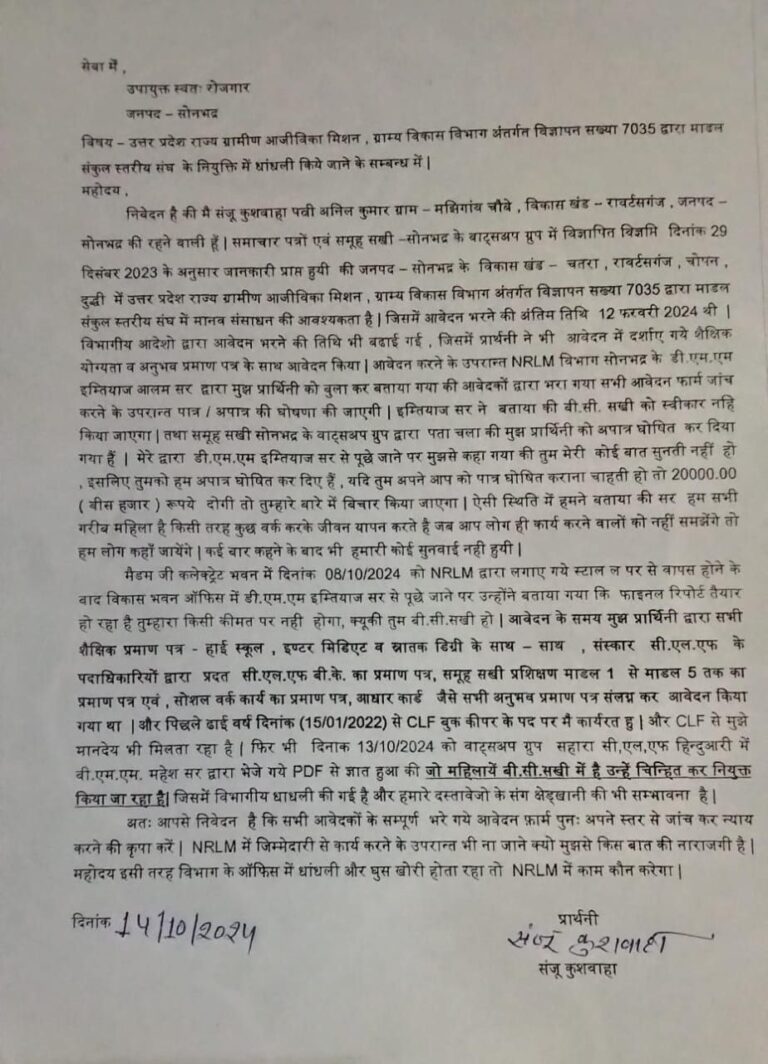 सेवा में ,
उपायुक्त स्वतः रोजगार
जनपद – सोनभद्र
विषय – उत्तर प्रदेश राज्य ग्रामीण आजीविका मिशन , ग्राम्य विकास विभाग अंतर्गत विज्ञापन सख्या 7035 द्वारा माडल
संकुल स्तरीय संघ के नियुक्ति में धांधली किये जाने के सम्बन्ध में |
महोदय ,
निवेदन है की मै संजू कुशवाहा पत्नी अनिल कुमार ग्राम – मझिगांय चौबे , विकास खंड – रावर्टसगंज , जनपद –
सोनभद्र की रहने वाली हूँ | समाचार पत्रों एवं समूह सखी –सोनभद्र के वाट्सअप ग्रुप में विज्ञापित विज्ञप्ति दिनांक 29
दिसंबर 2023 के अनुसार जानकारी प्राप्त हुयी की जनपद – सोनभद्र के विकास खंड – चतरा , रावर्टसगंज , चोपन ,
दुद्धी में उत्तर प्रदेश राज्य ग्रामीण आजीविका मिशन , ग्राम्य विकास विभाग अंतर्गत विज्ञापन सख्या 7035 द्वारा माडल
संकुल स्तरीय संघ में मानव संसाधन की आवश्यकता है | जिसमें आवेदन भरने की अंतिम तिथि 12 फरवरी 2024 थी |
विभागीय आदेशो द्वारा आवेदन भरने की तिथि भी बढाई गई , जिसमें प्रार्थनी ने भी आवेदन में दर्शाए गये शैक्षिक
योग्यता व अनुभव प्रमाण पत्र के साथ आवेदन किया | आवेदन करने के उपरान्त NRLM विभाग सोनभद्र के डी.एम.एम
इम्तियाज आलम सर द्वारा मुझ प्रार्थिनी को बुला कर बताया गया की आवेदकों द्वारा भरा गया सभी आवेदन फार्म जांच
करने के उपरान्त पात्र / अपात्र की घोषणा की जाएगी | इम्तियाज सर ने बताया की बी.सी. सखी को स्वीकार नहि
किया जाएगा | तथा समूह सखी सोनभद्र के वाट्सअप ग्रुप द्वारा पता चला की मुझ प्रार्थिनी को अपात्र घोषित कर दिया
गया हैं | मेरे द्वारा डी.एम.एम इम्तियाज सर से पूछे जाने पर मुझसे कहा गया की तुम मेरी कोई बात सुनती नहीं हो
, इसलिए तुमको हम अपात्र घोषित कर दिए हैं , यदि तुम अपने आप को पात्र घोषित कराना चाहती हो तो 20000.00
( बीस हजार ) रूपये दोगी तो तुम्हारे बारे में बिचार किया जाएगा | ऐसी स्थिति में हमने बताया की सर हम सभी
गरीब महिला है किसी तरह कुछ वर्क करके जीवन यापन करते है जब आप लोग ही कार्य करने वालों को नहीं समझेंगे तो
हम लोग कहाँ जायेंगे | कई बार कहने के बाद भी हमारी कोई सुनवाई नही हुयी |
मैडम जी कलेक्ट्रेट भवन में दिनांक 08/10/2024 को NRLM द्वारा लगाए गये स्टाल ल पर से वापस होने के
बाद विकास भवन ऑफिस में डी.एम.एम इम्तियाज सर से पूछे जाने पर उन्होंने बताया गया कि फाइनल रिपोर्ट तैयार
हो रहा है तुम्हारा किसी कीमत पर नही होगा, क्यूकी तुम बी.सी.सखी हो | आवेदन के समय मुझ प्रार्थिनी द्वारा सभी
शैक्षिक प्रमाण पत्र - हाई स्कूल , इण्टर मिडिएट व स्नातक डिग्री के साथ – साथ , संस्कार सी.एल.एफ के
पदाधिकारियों द्वारा प्रदत सी.एल.एफ बी.के. का प्रमाण पत्र, समूह सखी प्रशिक्षण माडल 1 से माडल 5 तक का
प्रमाण पत्र एवं , सोशल वर्क कार्य का प्रमाण पत्र, आधार कार्ड जैसे सभी अनुभव प्रमाण पत्र संलग्न कर आवेदन किया
गया था | और पिछले ढाई वर्ष दिनांक (15/01/2022) से CLF बुक कीपर के पद पर मै कार्यरत हु | और CLF से मुझे
मानदेय भी मिलता रहा है | फिर भी दिनांक 13/10/2024 को वाट्सअप ग्रुप सहारा सी,एल,एफ हिन्दुआरी में
बी.एम.एम. महेश सर द्वारा भेजे गये PDF से ज्ञात हुआ की जो महिलायें बी.सी.सखी में है उन्हें चिन्हित कर नियुक्त
किया जा रहा है| जिसमें विभागीय धाधली की गई है और हमारे दस्तावेजो के संग क्षेड्खानी की भी सम्भावना है |
अतः आपसे निवेदन है कि सभी आवेदकों के सम्पूर्ण भरे गये आवेदन फ़ार्म पुनः अपने स्तर से जांच कर न्याय
करने की कृपा करें | NRLM में जिम्मेदारी से कार्य करने के उपरान्त भी ना जाने क्यो मुझसे किस बात की नाराजगी है |
महोदय इसी तरह विभाग के ऑफिस में धांधली और घुस खोरी होता रहा तो NRLM में काम कौन करेगा |
दिनांक 14/10/2024
प्रार्थनी
संजू कुशवाहा
संजू कुशवाहा